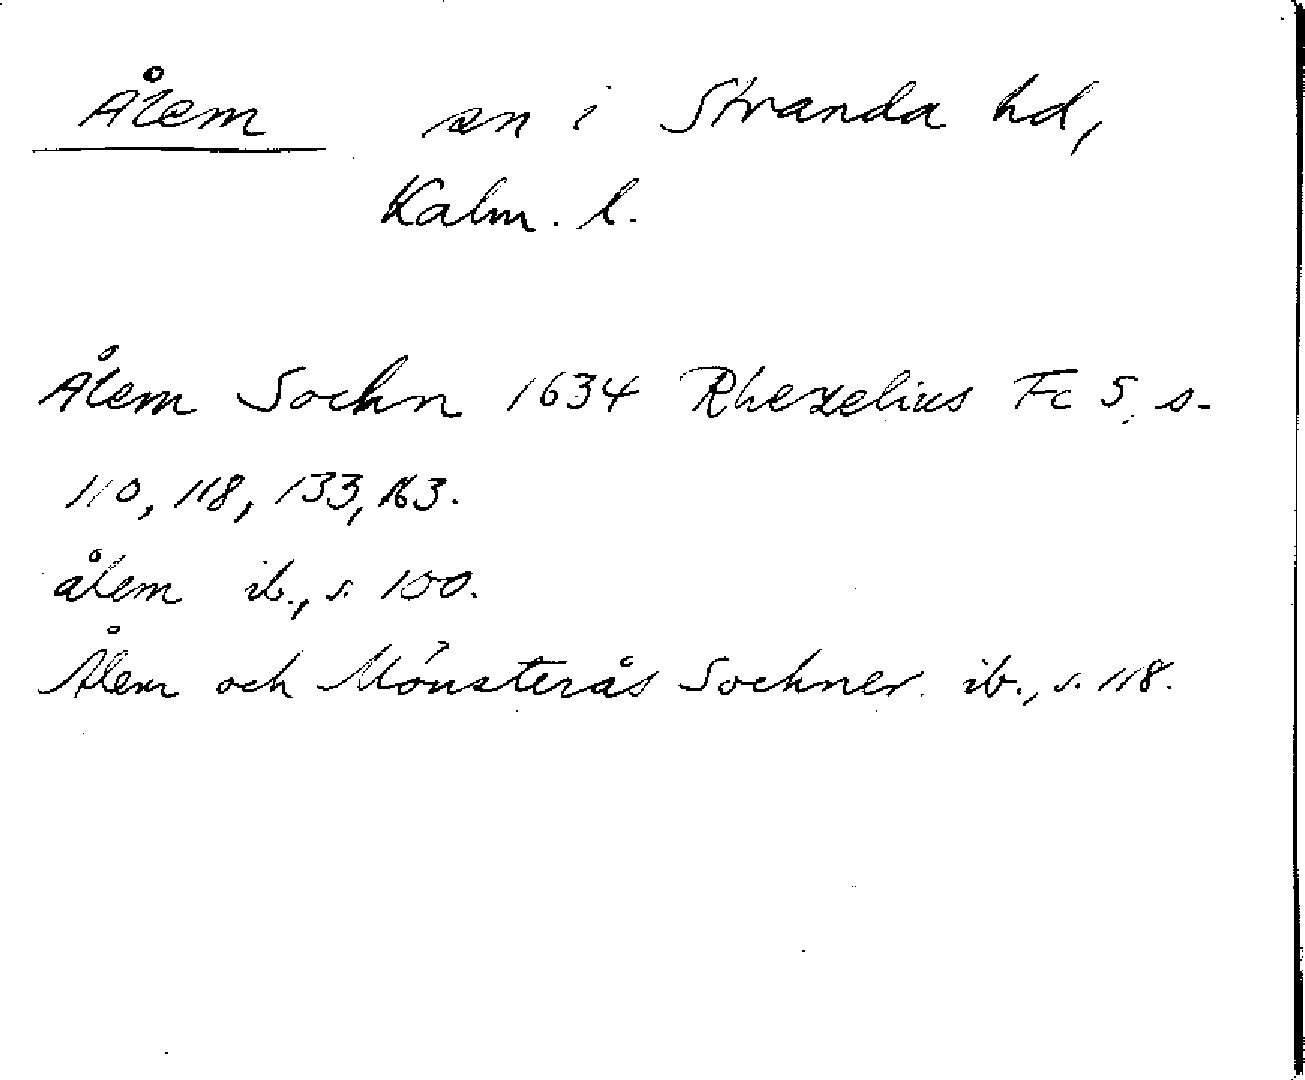 Ålem sn i Stranda hd,
Kalm. l.
Ålem Sochn 1634 Rhezelius Fc 5, s.
110, 118, 133, 163.
ålem ib., s. 100.
Ålem och Mönsterås Sochner. ib., s. 118.